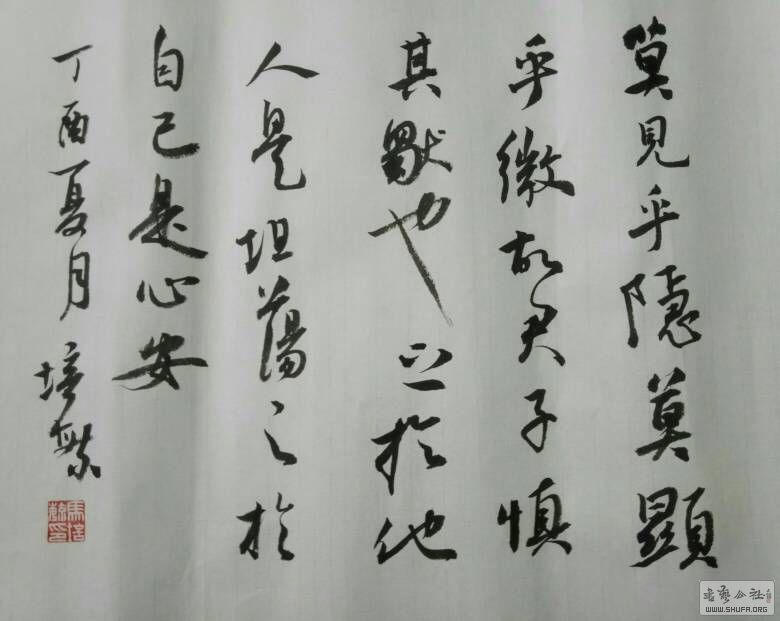 莫見乎隱莫顯
乎微故君子慎
其獨也之於他
人是坦蕩之於
自己是心安
丁酉夏月 培
書藝公社
WWW.SHUFA.ORG